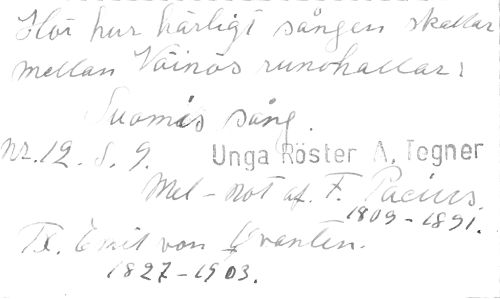 Hör hur härligt sången skallar
mellan Väinös runohallar:
Suomis sång.
Nr. 12. S. 9. Unga Röster A. Tegner
Mel - not af. F. Pacius.
1809 - 1891.
Tx. Emil von Qvanten.
1827 - 1903.